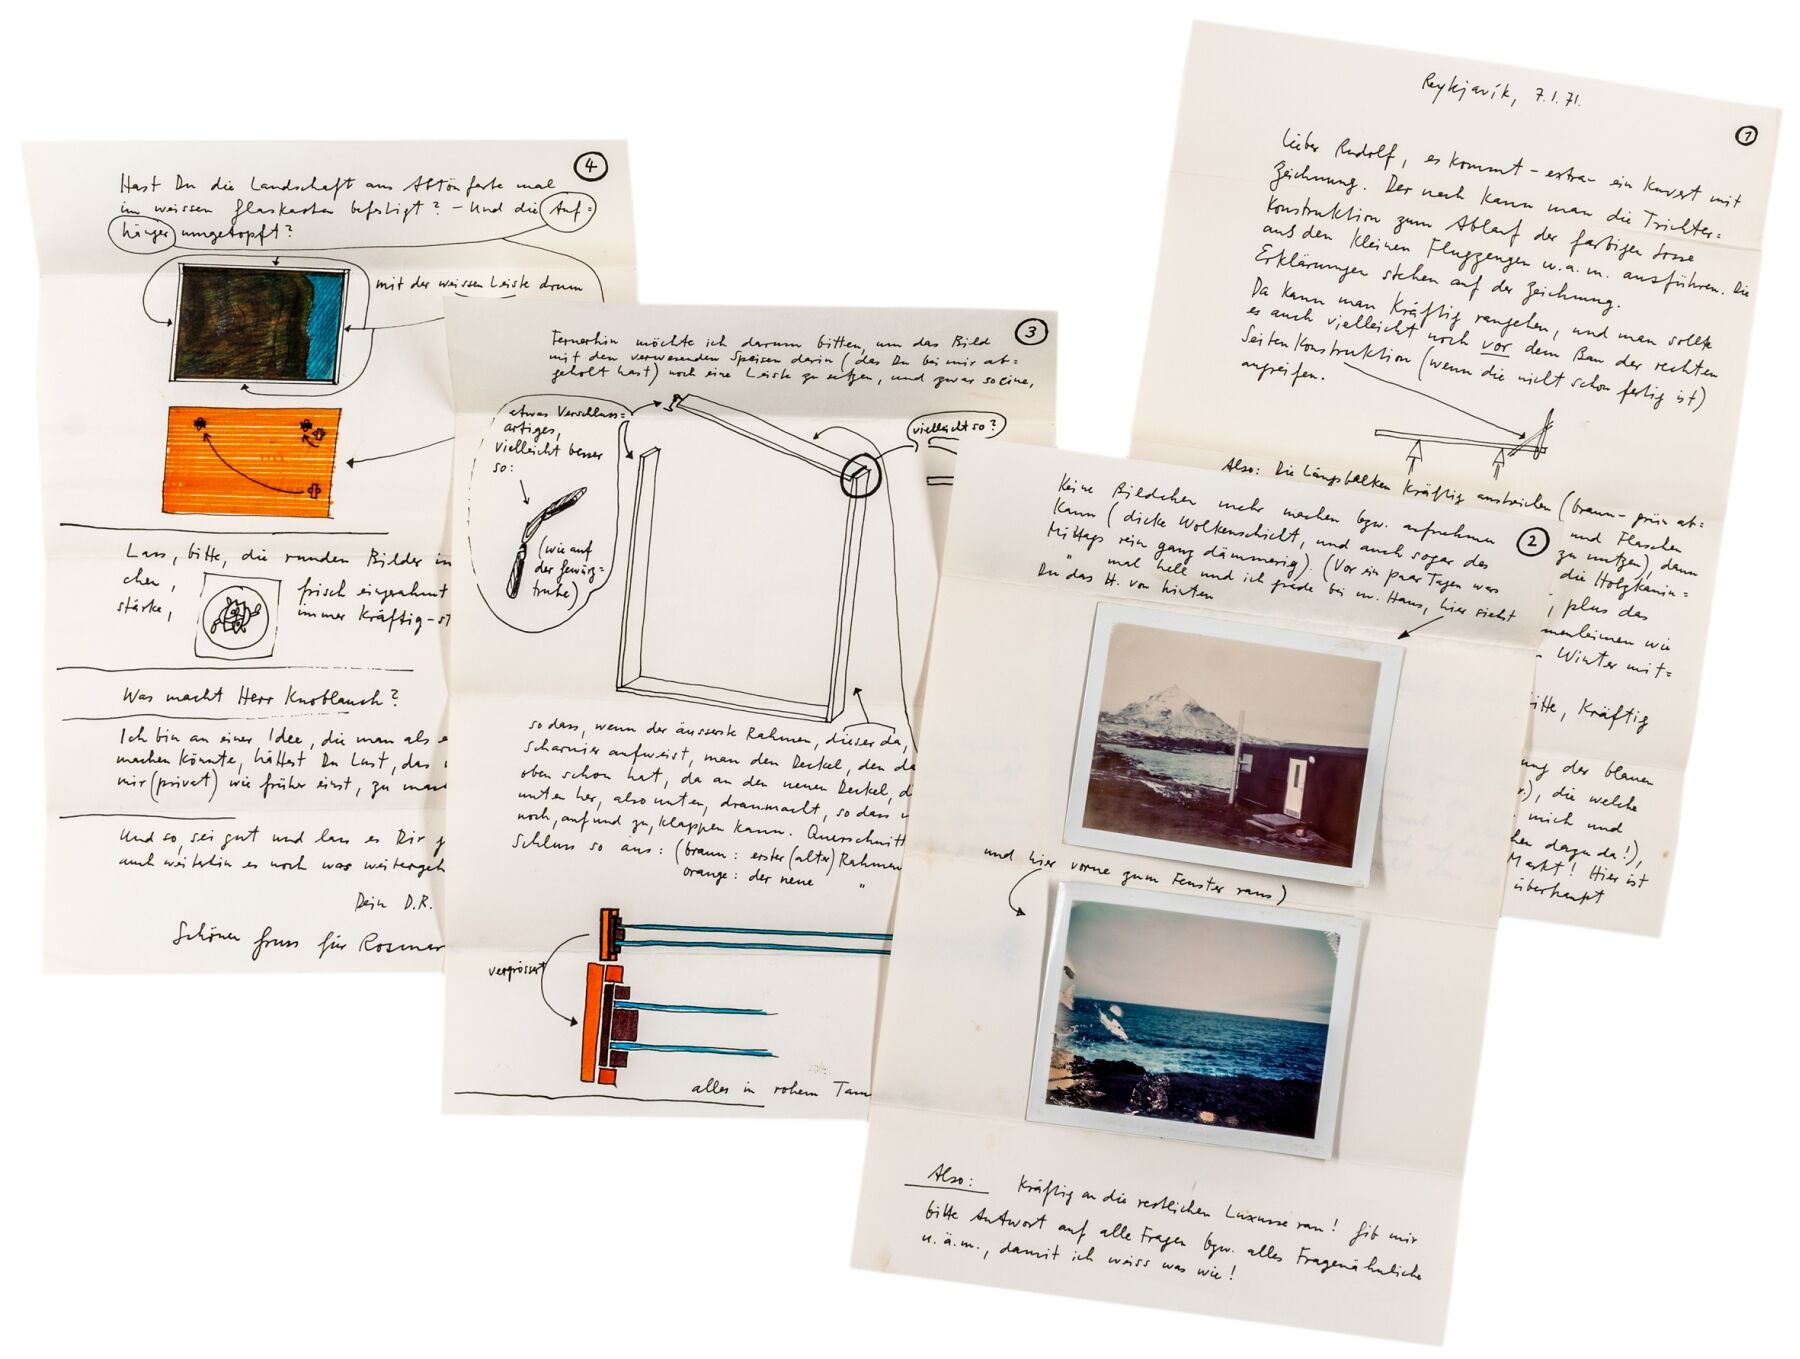 Reykjavík, 7.1.71.
①
Lieber Rudolf, es kommt – extra – ein Kuvert mit
Zeichnung. Der nach kann man die Trichter=
Konstruktion zum Ablauf der farbigen Sosse
aus den kleinen Flugzeugen u.a.m. ausführen. Die
Erklärungen stehen auf der Zeichnung.
Da kann man kräftig rangehen, und man sollte
es auch vielleicht noch vor dem Bau der rechten
Seitenkonstruktion (wenn die nicht schon fertig ist)
angreifen.
Also: Die Längsbalken kräftig anstreichen (braun-grün ab=
und Flaschen
zu nutzen), dann
die Holzkanin=
, plus das
menleimen wie
Winter mit=
itte, kräftig
ung der blauen
.), die welche
mich und
hen dazu da!),
Markt! Hier ist
überhaupt
②
Keine Bildchen mehr machen bzw. aufnehmen
kann (dicke Wolkenschicht, und auch sogar des
Mittags rein ganz dämmerig). (Vor ein paar Tagen was
" mal hell und ich grade bei m. Haus, hier siehst
Du das H. von hinten
und hier vorne zum Fenster raus)
Also: Kräftig an die restlichen Luxusse ran! Gib mir
bitte Antwort auf alle Fragen bzw. alles Fragenähnliche
u.ä.m., damit ich weiss was wie!
③
Fernerhin möchte ich darum bitten, um das Bild
mit den verwesenden Speisen darin (das Du bei mir ab=
geholt hast) noch eine Leiste zu setzen, und zwar so eine,
etwas Verschluss=
artiges,
vielleicht besser
so:
(wie auf
der Gewürz=
truhe)
vielleicht so?
so dass, wenn der äusserste Rahmen, dieser da,
Scharnier aufweist, man den Deckel, den da
oben schon hat, da an den neuen Deckel, d
unten her, also unten, dranmacht, so dass
noch, auf und zu, klappen kann. Querschnitt
Schluss so aus: (braun: erster (alter) Rahmen
orange: der neue "
vergrössert
alles in rohem Tann
④
Hast Du die Landschaft aus Abtönfarbe mal
im weissen Glaskasten befestigt? – Und die Auf=
hänger umgetopft?
mit der weissen Leiste drum
Lass, bitte, die runden Bilder in
chen, frisch eingerahmt
stärke, immer kräftig-st
Was macht Herr Knoblauch?
Ich bin an einer Idee, die man als e
machen könnte, hättest Du Lust, das
mir (privat) wie früher einst, zu mach
Und so, sei gut und lass es Dir g
auch weiterhin es noch was weitergeh
Dein D.R.
Schönen Gruss für Rosmar